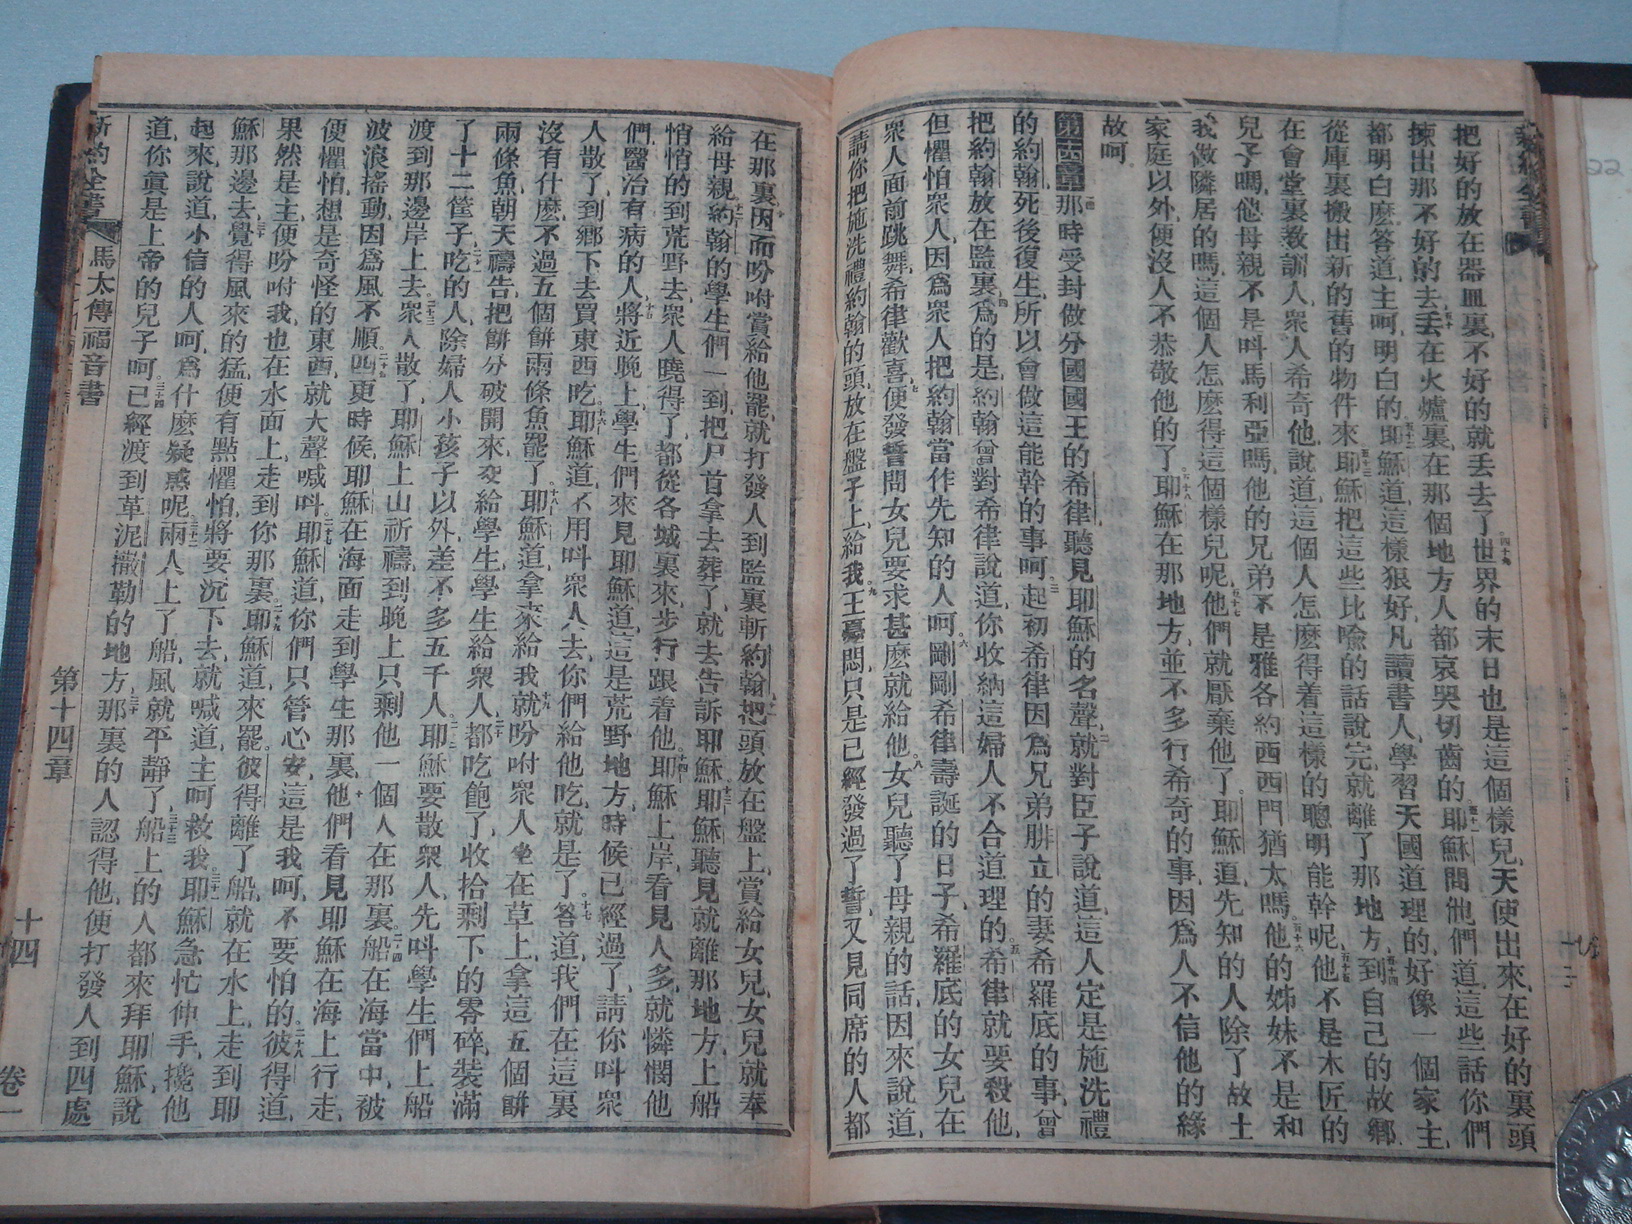 把好的放在器皿裏、不好的就丢去了。四十九世界的末日也是這個樣兒、天使出來、在好的裏頭
揀出那不好的去、五十丢在火爐裏、在那個地方人都哀哭切齒的。五十一耶穌問他們道、這些話你們
都明白麽、答道、主呵、明白的。五十二耶穌道、這樣狠好、凡讀書人、學習天國道理的、好像一個家主、
從庫裏搬出新的舊的物件來。五十三耶穌把這些比喩的話說完、就離了那地方、五十四到自己的故鄉、
在會堂裏教訓人、衆人希奇他、說道、這個人怎麽得着這樣的聰明能幹呢、五十五他不是木匠的
兒子嗎、他母親不是呌馬利亞嗎、他的兄弟不是雅各約西西門猶太嗎。五十六他的姊妹不是和
我做隣居的嗎、這個人怎麽得這個樣兒呢、五十七他們就厭棄他了。耶穌道、先知的人除了故土
家庭以外、便沒人不恭敬他的了。五十八耶穌在那地方、並不多行希奇的事、因爲人不信他的緣
故呵。
第十四章 一那時受封做分國國王的希律、聽見耶穌的名聲、二就對臣子說道、這人定是施洗禮
的約翰、死後復生、所以會做這能幹的事呵。三起初希律因爲兄弟腓立的妻希羅底的事、曾
把約翰放在監裏、四爲的是約翰曾對希律說道、你收納這婦人不合道理的。五希律就要殺他、
但懼怕衆人、因爲衆人把約翰當作先知的人呵。六剛剛希律壽誕的日子、希羅底的女兒在
衆人面前跳舞、希律歡喜、七便發誓問女兒要求甚麽、就給他。八女兒聽了母親的話、因來說道、
請你把施洗禮約翰的頭、放在盤子上、給我。九王憂悶、只是已經發過了誓、又見同席的人都
在那裏、因而吩咐賞給他罷、十就打發人到監裏斬約翰、十一把頭放在盤上、賞給女兒、女兒就奉
給母親。十二約翰的學生們一到、把尸首拿去葬了、就去告訴耶穌。十三耶穌聽見、就離那地方、上船
悄悄的到荒野去、衆人曉得了、都從各城裏來、步行跟着他。十四耶穌上岸、看見人多、就憐憫他
們、醫治有病的人。十五將近晚上、學生們來見耶穌道、這是荒野地方、時候已經過了、請你呌衆
人散了、到鄉下去買東西吃。十六耶穌道、不用呌衆人去、你們給他吃、就是了。十七答道、我們在這裏
沒有什麽、不過五個餅兩條魚罷了。十八耶穌道、拿來給我、十九就吩咐衆人坐在草上、拿這五個餠
兩條魚、朝天禱告、把餠分破開來、交給學生、學生給衆人、二十都吃飽了、收拾剩下的零碎、裝滿
了十二筐子。二十一吃的人、除婦人小孩子以外、差不多五千人。二十二耶穌要散衆人、先呌學生們上船
渡到那邊岸上去。二十三衆人散了、耶穌上山祈禱、到晚上、只剩他一個人在那裏。二十四船在海當中、被
波浪搖動、因爲風不順。二十五四更時候、耶穌在海面走到學生那裏、二十六他們看見耶穌在海上行走、
便懼怕、想是奇怪的東西、就大聲喊呌。二十七耶穌道、你們只管心安、這是我呵、不要怕的。二十八彼得道、
果然是主、便吩咐我也在水面上走到你那裏。二十九耶穌道、來罷。彼得離了船、就在水上、走到耶
穌那邊去。三十覺得風來的猛、便有點懼怕、將要沉下去、就喊道、主呵救我。三十一耶穌急忙伸手、攙他
起來、說道、小信的人呵、爲什麽疑惑呢。三十二兩人上了船、風就平靜了。三十三船上的人都來拜耶穌、說
道、你眞是上帝的兒子呵。三十四已經渡到革泥撒勒的地方、三十五那裏的人認得他、便打發人到四處
新約全書 馬太傳福音書 第十四章 十四 卷一